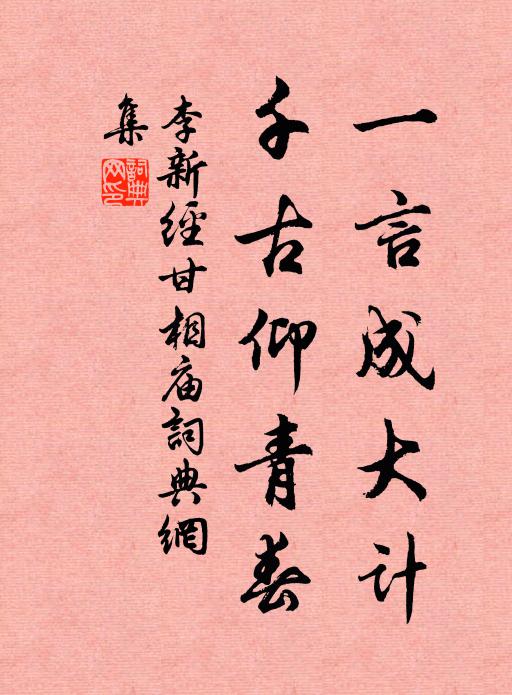 一言成大计
千古仰青春
李新經甘相庙詞典網
集
詞典网印